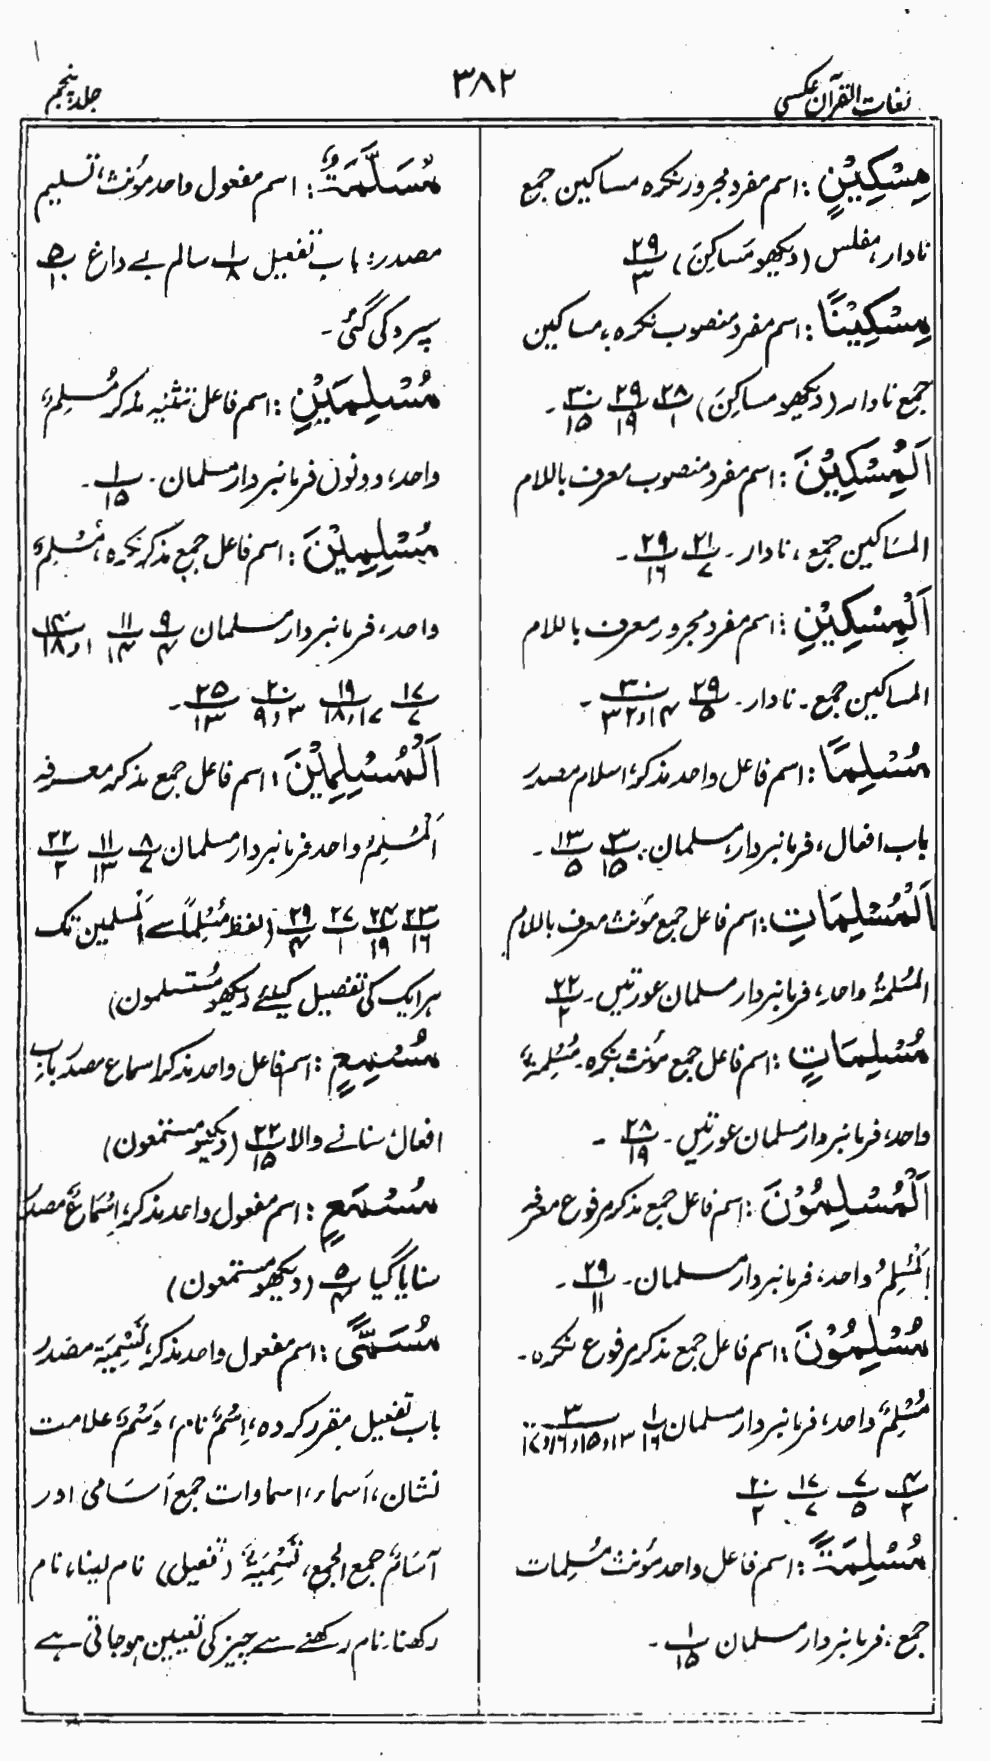 لغات القرآن عکسی
۳۸۲
جلد پنجم
مِسْكِيْنٍ : اسم مفرد مجرور نکرہ مساکین جمع
نادار، مفلس (دیکھو مَسَاکِنَ) ۲۹/۳
مِسْكِيْنًا : اسم مفرد منصوب نکرہ، مساکین
جمع نادار (دیکھو مساکِنَ) ۲۸/۱ ۲۹/۱۹ ۳۰/۱۵ ۔
اَلْمِسْكِيْنَ : اسم مفرد منصوب معرف باللام
المساکین جمع، نادار ۔ ۲۱/۷ ۲۹/۱۶ ۔
اَلْمِسْكِيْنِ : اسم مفرد مجرور معرف باللام
المساکین جمع ۔ نادار ۔ ۲۹/۵ ۳۰/۱۴،۳۲ ۔
مُسْلِمًا : اسم فاعل واحد مذکر، اسلام مصدر
باب افعال، فرمانبردار، مسلمان ۔ ۳/۱۵ ۱۳/۵ ۔
اَلْمُسْلِمَاتِ : اسم فاعل جمع مؤنث معرف باللام
المُسْلِمَۃُ واحد، فرمانبردار مسلمان عورتیں ۔ ۲۲/۲
مُسْلِمَاتٍ : اسم فاعل جمع مؤنث نکرہ ۔ مُسْلِمَۃٌ
واحد، فرمانبردار مسلمان عورتیں ۔ ۲۸/۱۹ ۔
اَلْمُسْلِمُوْنَ : اسم فاعل جمع مذکر مرفوع معرفہ
اَلْمُسْلِمُ واحد، فرمانبردار مسلمان ۔ ۲۹/۱۱ ۔
مُسْلِمُوْنَ : اسم فاعل جمع مذکر مرفوع نکرہ ۔
مُسْلِمٌ واحد، فرمانبردار مسلمان ۱/۱۶ ۳/۱۳،۱۵،۱۶،۱۷
۴/۲ ۷/۵ ۱۷/۷ ۲۰/۲
مُسْلِمَةً : اسم فاعل واحد مؤنث مُسْلِمات
جمع، فرمانبردار مسلمان ۱/۱۵ ۔
مُسَلَّمَةٌ : اسم مفعول واحد مؤنث، تسلیم
مصدر، باب تفعیل ۱/۸ سالم بے داغ ۵/۱۰
سپرد کی گئی ۔
مُسْلِمَيْنِ : اسم فاعل تثنیہ مذکر مُسْلِمٌ
واحد، دونوں فرمانبردار مسلمان ۔ ۱/۱۵ ۔
مُسْلِمِيْنَ : اسم فاعل جمع مذکر نکرہ، مُسْلِمٌ
واحد، فرمانبردار مسلمان ۹/۴ ۱۱/۱۴ ۱۴/۱،۱۸
۱۷/۷ ۱۹/۱۷،۱۸ ۲۰/۳،۹ ۲۵/۱۳ ۔
اَلْمُسْلِمِيْنَ : اسم فاعل جمع مذکر معرفہ
اَلْمُسْلِمُ واحد فرمانبردار مسلمان ۸/۷ ۱۱/۱۳ ۲۲/۲
۲۳/۱۶ ۲۴/۱۹ ۲۷/۱ ۲۹/۴ (لفظ مُسْلِمًا سے اَلْمسلمین تک
ہر ایک کی تفصیل کیلئے دیکھو مُسْتسلمون)
مُسْمِعٍ : اسم فاعل واحد مذکر اسماع مصدر باب
افعال، سنانے والا ۲۲/۱۵ (دیکھو مستمعون)
مُسْمَعٍ : اسم مفعول واحد مذکر، اِسْمَاعٌ مصدر
سنایا گیا ۵/۴ (دیکھو مستمعون)
مُسَمًّى : اسم مفعول واحد مذکر، تَسْمِیَۃٌ مصدر
باب تفعیل مقرر کردہ، اِسْمٌ نام، وَسْمٌ علامت
نشان، اَسماء، اسماوات جمع اَسَامی اور
اَسَامٌ جمع الجمع، تَسْمِیَۃٌ (تفعیل) نام لینا، نام
رکھنا ۔ نام رکھنے سے چیز کی تعیین ہوجاتی ہے